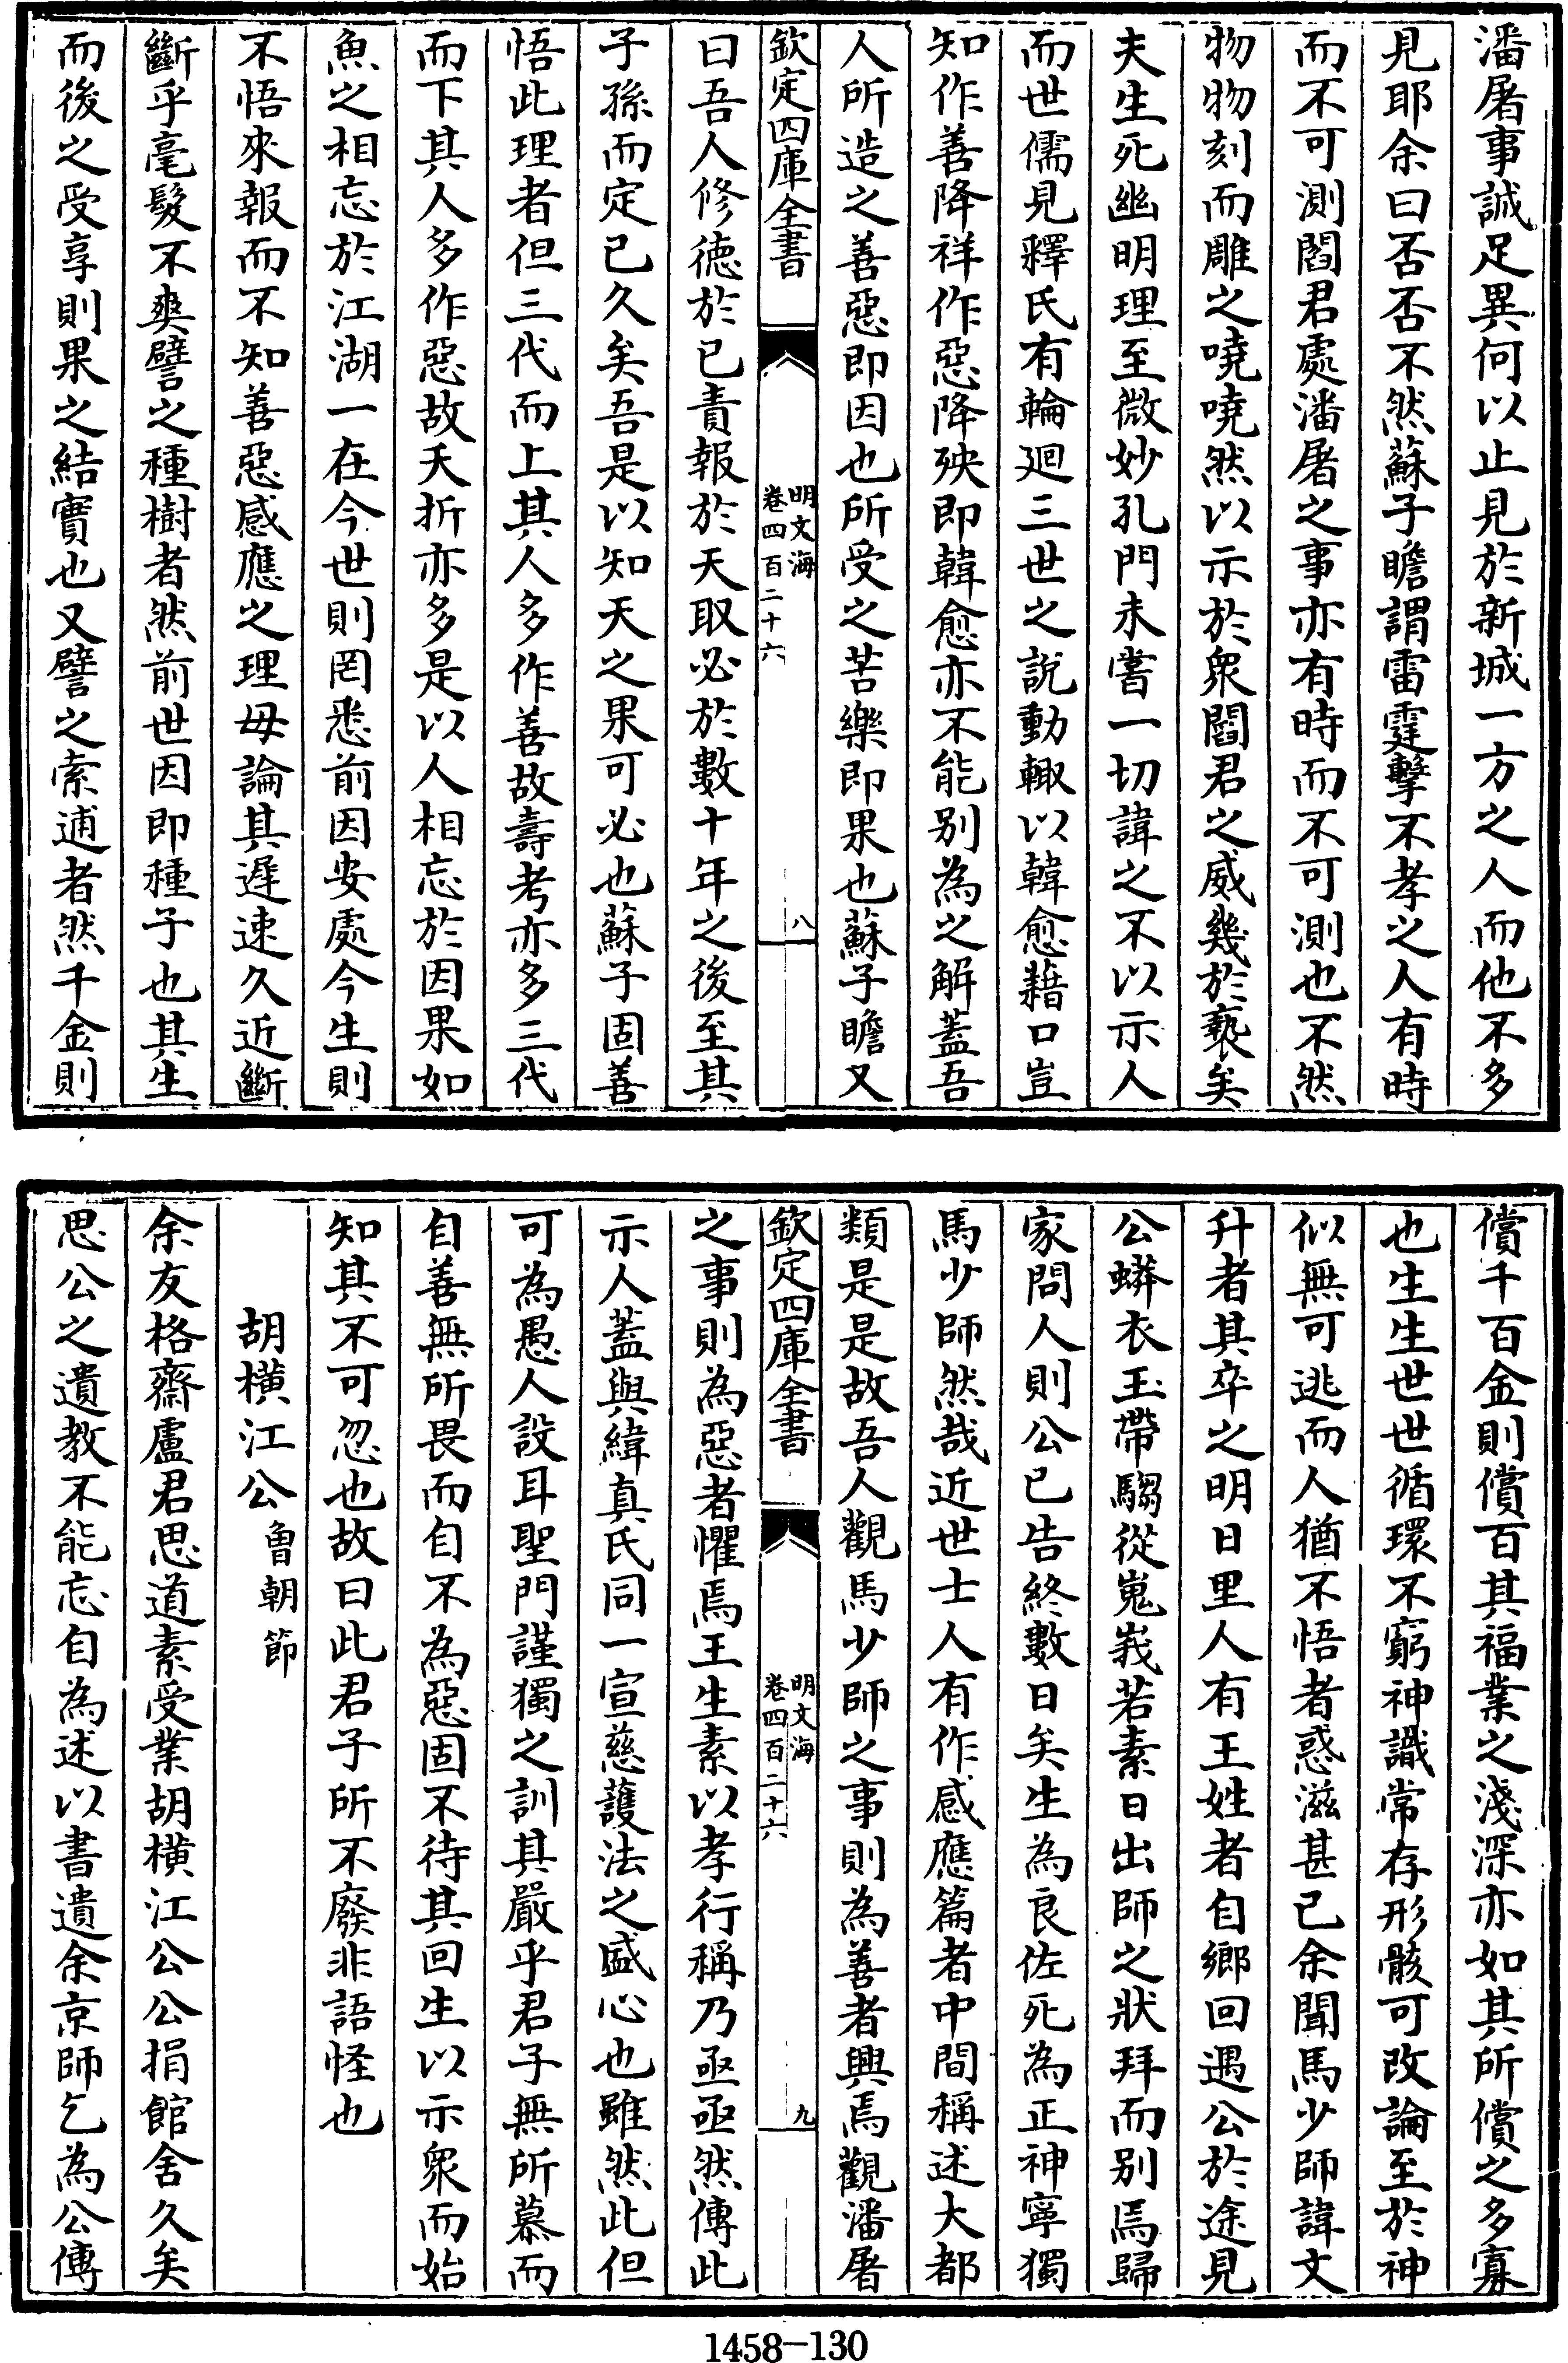 潘屠事誠足異何以止見於新城一方之人而他不多
見耶余曰否否不然蘇子瞻謂雷霆擊不孝之人有時
而不可測閻君處潘屠之事亦有時而不可測也不然
物物刻而雕之嘵嘵然以示於衆閻君之威幾於褻矣
夫生死幽明理至微妙孔門未嘗一切諱之不以示人
而世儒見釋氏有輪廻三世之說動輙以韓愈藉口豈
知作善降祥作惡降殃即韓愈亦不能別為之解蓋吾
人所造之善惡即因也所受之苦樂即果也蘇子瞻又
欽定四庫全書
明文海
卷四百二十六
八
曰吾人修德於已責報於天取必於數十年之後至其
子孫而定已久矣吾是以知天之果可必也蘇子固善
悟此理者但三代而上其人多作善故壽考亦多三代
而下其人多作惡故夭折亦多是以人相忘於因果如
魚之相忘於江湖一在今世則罔悉前因安處今生則
不悟來報而不知善惡感應之理毋論其遲速久近斷
斷乎毫髮不爽譬之種樹者然前世因即種子也其生
而後之受享則果之結實也又譬之索逋者然千金則
償千百金則償百其福業之淺深亦如其所償之多寡
也生生世世循環不窮神識常存形骸可改論至於神
似無可逃而人猶不悟者惑滋甚已余聞馬少師諱文
升者其卒之明日里人有王姓者自鄉回遇公於途見
公蟒衣玉帶騶從嵬峩若素日出師之狀拜而別焉歸
家問人則公已告終數日矣生為良佐死為正神寧獨
馬少師然哉近世士人有作感應篇者中間稱述大都
類是是故吾人觀馬少師之事則為善者興焉觀潘屠
欽定四庫全書
明文海
卷四百二十六
九
之事則為惡者懼焉王生素以孝行稱乃亟亟然傳此
示人蓋與緯真氏同一宣慈護法之盛心也雖然此但
可為愚人設耳聖門謹獨之訓其嚴乎君子無所慕而
自善無所畏而自不為惡固不待其回生以示衆而始
知其不可忽也故曰此君子所不廢非語怪也
胡橫江公 魯朝節
余友格齋盧君思道素受業胡橫江公公捐館舍久矣
思公之遺教不能忘自為述以書遺余京師乞為公傳
1458-130